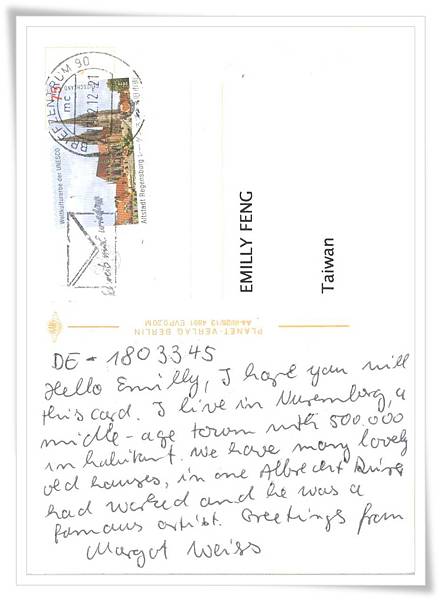 BRIEFZENTRUM 90
mc
Weltkulturerbe der UNESCO
Altstadt Regensburg
Schreib mal wieder
EMILLY FENG
Taiwan
PLANET-VERLAG BERLIN
4891 EVP 0,20 M
DE-1803345
Hello Emilly, I hope you will
this card. I live in Nuremborg, a
middle-age town with 500.000
inhabitant. We have many lovely
old houses, in one Albrecht Dürer
had worked and he was a
famous artist. Greetings from
Margot Weiss